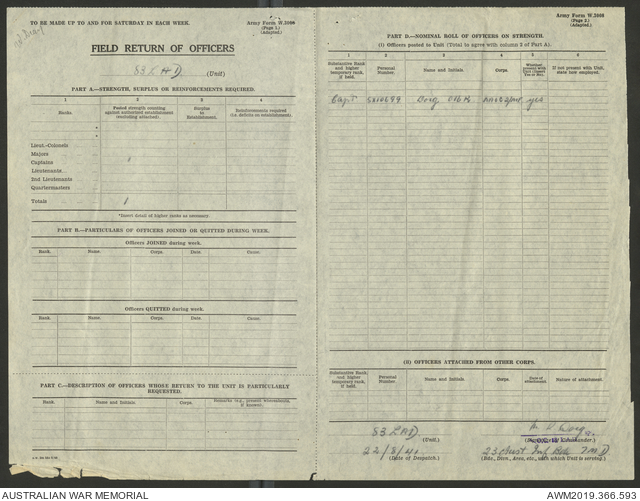 TO BE MADE UP TO AND FOR SATURDAY IN EACH WEEK.
Army Form W.3008
(Page 1.)
(Adapted.)
FIELD RETURN OF OFFICERS
83 LAD (Unit)
PART A.—STRENGTH, SURPLUS OR REINFORCEMENTS REQUIRED.
1 2 3 4
Ranks Posted strength counting against authorized establishment (excluding attached). Surplus to Establishment. Reinforcements required (i.e. deficits on establishment).
Lieut.-Colonels
Majors
Captains 1
Lieutenants
2nd Lieutenants
Quartermasters
Totals 1
*Insert detail of higher ranks as necessary.
PART B.—PARTICULARS OF OFFICERS JOINED OR QUITTED DURING WEEK.
Officers JOINED during week.
Rank. Name. Corps. Date. Cause.
Officers QUITTED during week.
Rank. Name. Corps. Date. Cause.
PART C.—DESCRIPTION OF OFFICERS WHOSE RETURN TO THE UNIT IS PARTICULARLY
REQUESTED.
Rank. Name and Initials. Corps. Remarks (e.g., present whereabouts, if known).
Army Form W.3008
(Page 2.)
(Adapted.)
PART D.—NOMINAL ROLL OF OFFICERS ON STRENGTH.
(i) Officers posted to Unit (Total to agree with column 2 of Part A).
1 2 3 4 5 6
Substantive Rank and higher temporary rank, if held. Personal Number. Name and Initials. Corps. Whether present with Unit (Insert Yes or No). If not present with Unit, state how employed.
Capt yes
(ii) OFFICERS ATTACHED FROM OTHER CORPS.
Substantive Rank and higher temporary rank, if held. Personal Number. Name and Initials. Corps. Date of attachment. Nature of attachment.
83 LAD
(Unit.) Commander.)
22/8/41 23 Aust Inf Bde 7 MD
(Date of Despatch.) (Bde., Divn., Area, etc., with which Unit is serving.)
AUSTRALIAN WAR MEMORIAL AWM2019.366.593